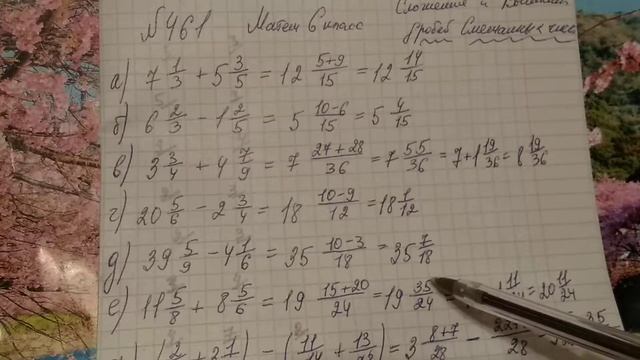 №461 Матем 6 класс Сложение и
дробей Смешанных чисел
а) 7 1/3 + 5 3/5 = 12 5+9/15 = 12 14/15
б) 6 2/3 - 1 2/5 = 5 10-6/15 = 5 4/15
в) 3 3/4 + 4 7/9 = 7 27+28/36 = 7 55/36 = 7+1 19/36 = 8 19/36
г) 20 5/6 - 2 3/4 = 18 10-9/12 = 18 1/12
д) 39 5/9 - 4 1/6 = 35 10-3/18 = 35 7/18
е) 11 5/8 + 8 5/6 = 19 15+20/24 = 19 35/24 = 11/24 = 20 11/24
2/ + 2 1/ ) - ( 11/ + 13/ ) = 3 8+7/28 - 22+/28 35/